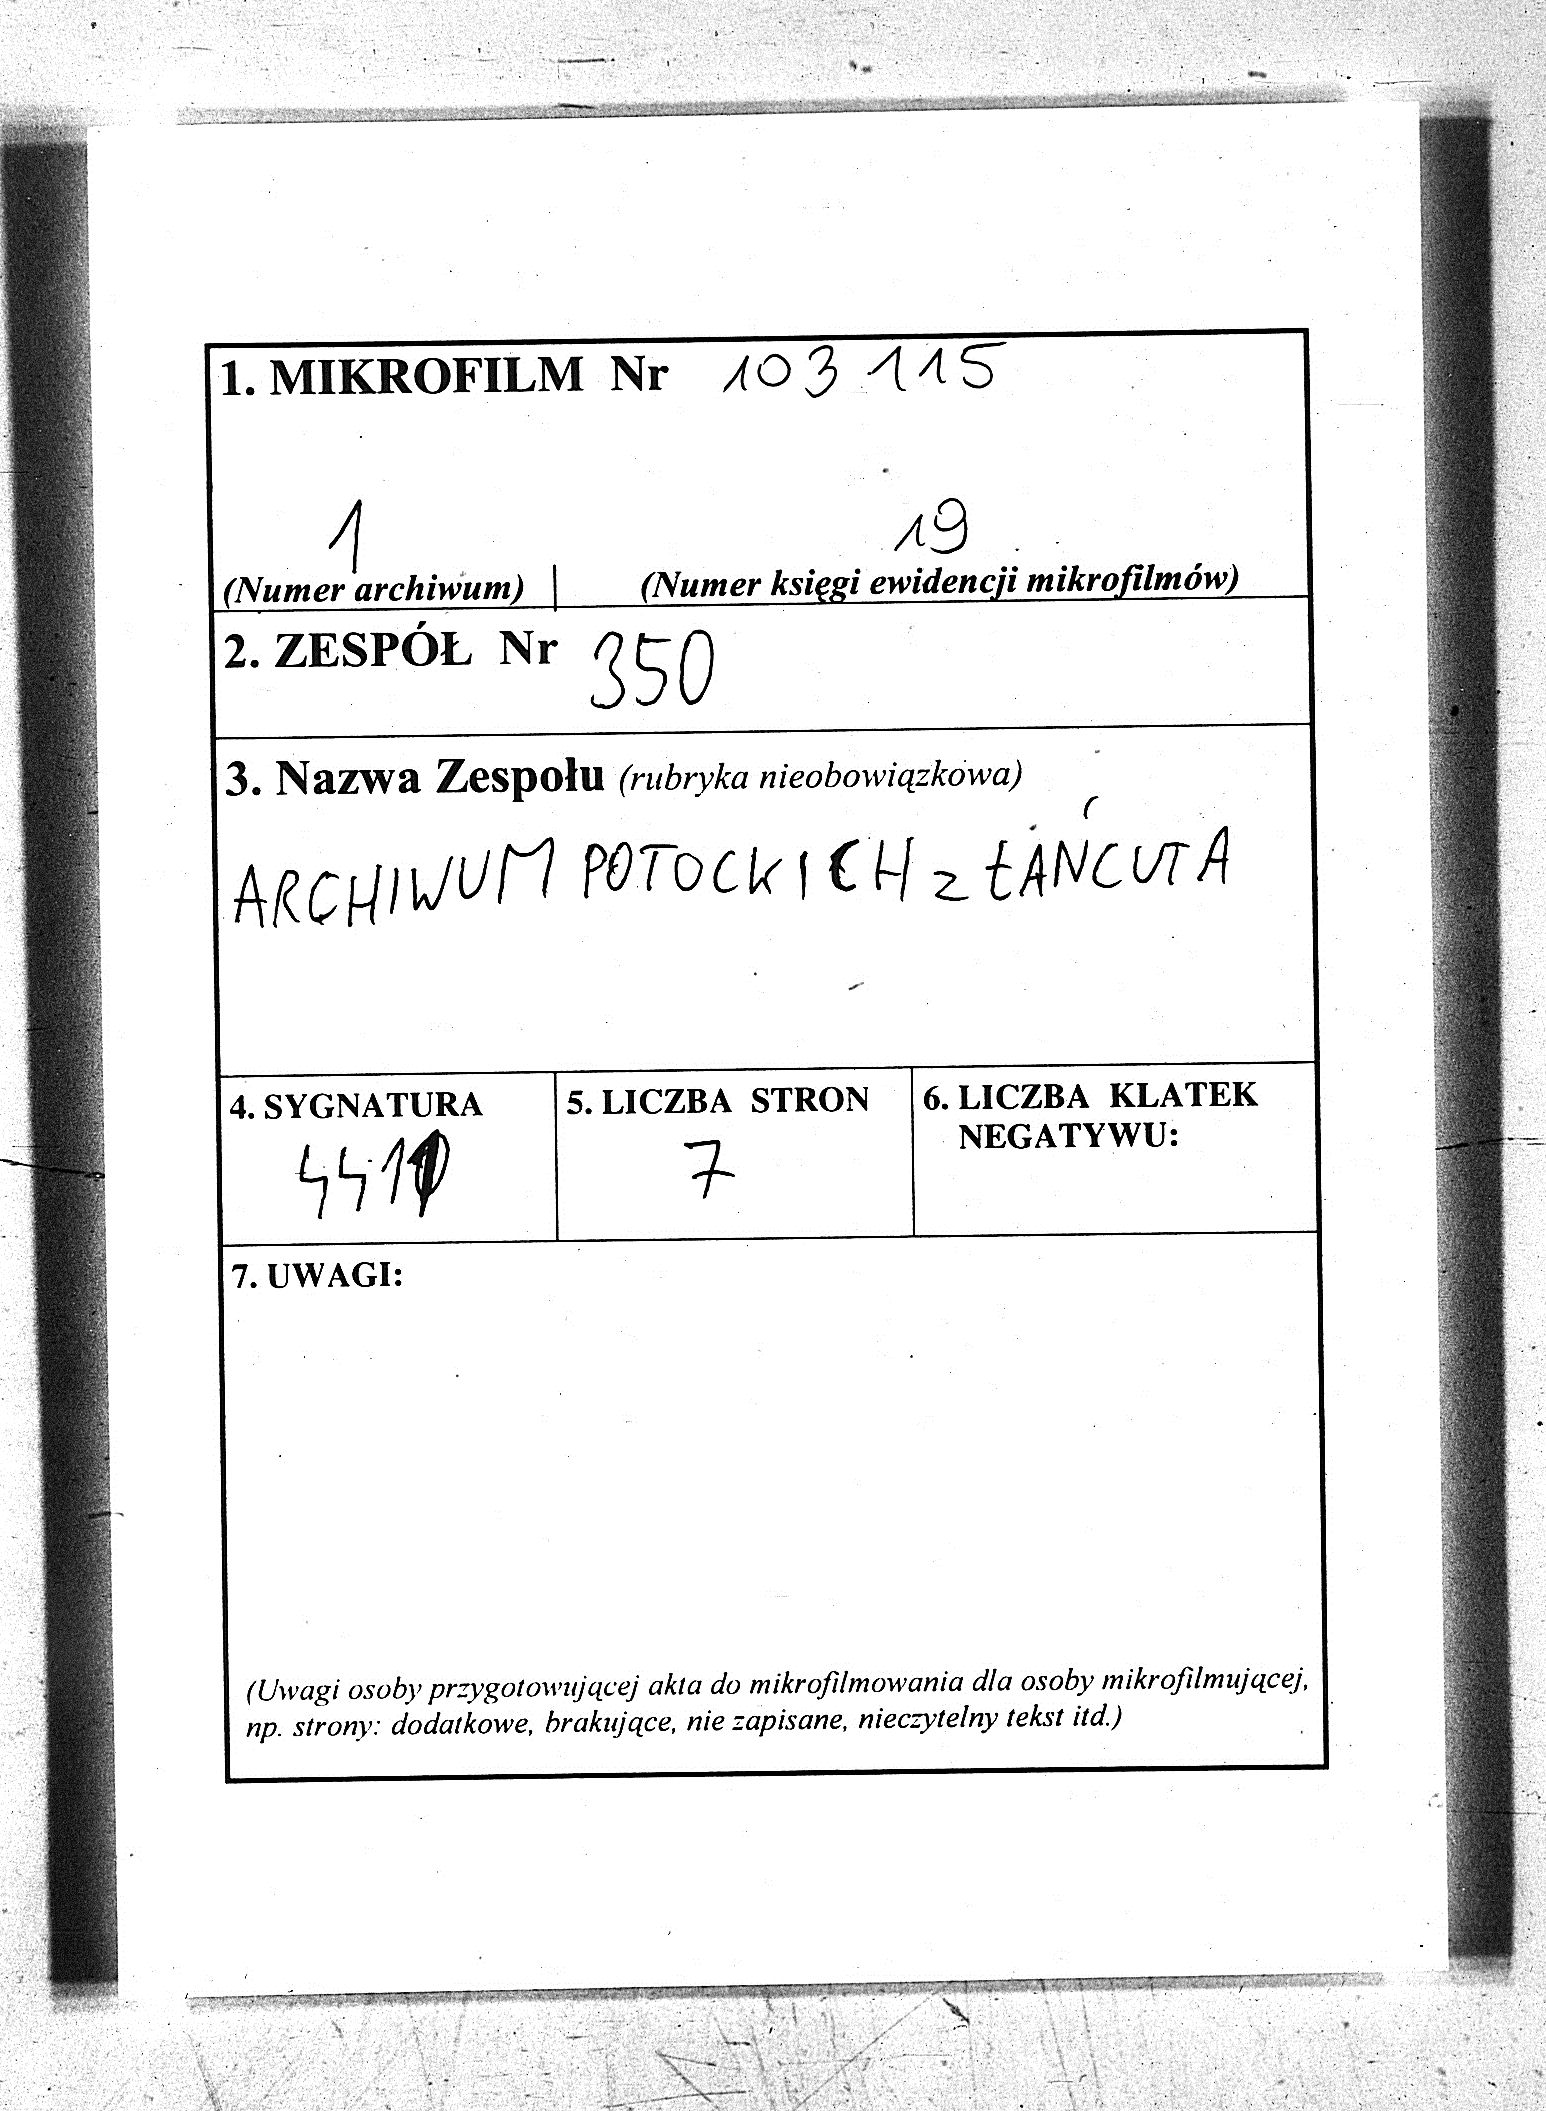 1. MIKROFILM Nr 103 115
1 19
(Numer archiwum) | (Numer księgi ewidencji mikrofilmów)
2. ZESPÓŁ Nr 350
3. Nazwa Zespołu (rubryka nieobowiązkowa)
ARCHIWUM POTOCKICH z ŁAŃCUTA
4. SYGNATURA
5. LICZBA STRON
7
6. LICZBA KLATEK
NEGATYWU:
7. UWAGI:
(Uwagi osoby przygotowującej akta do mikrofilmowania dla osoby mikrofilmującej,
np. strony: dodatkowe, brakujące, nie zapisane, nieczytelny tekst itd.)